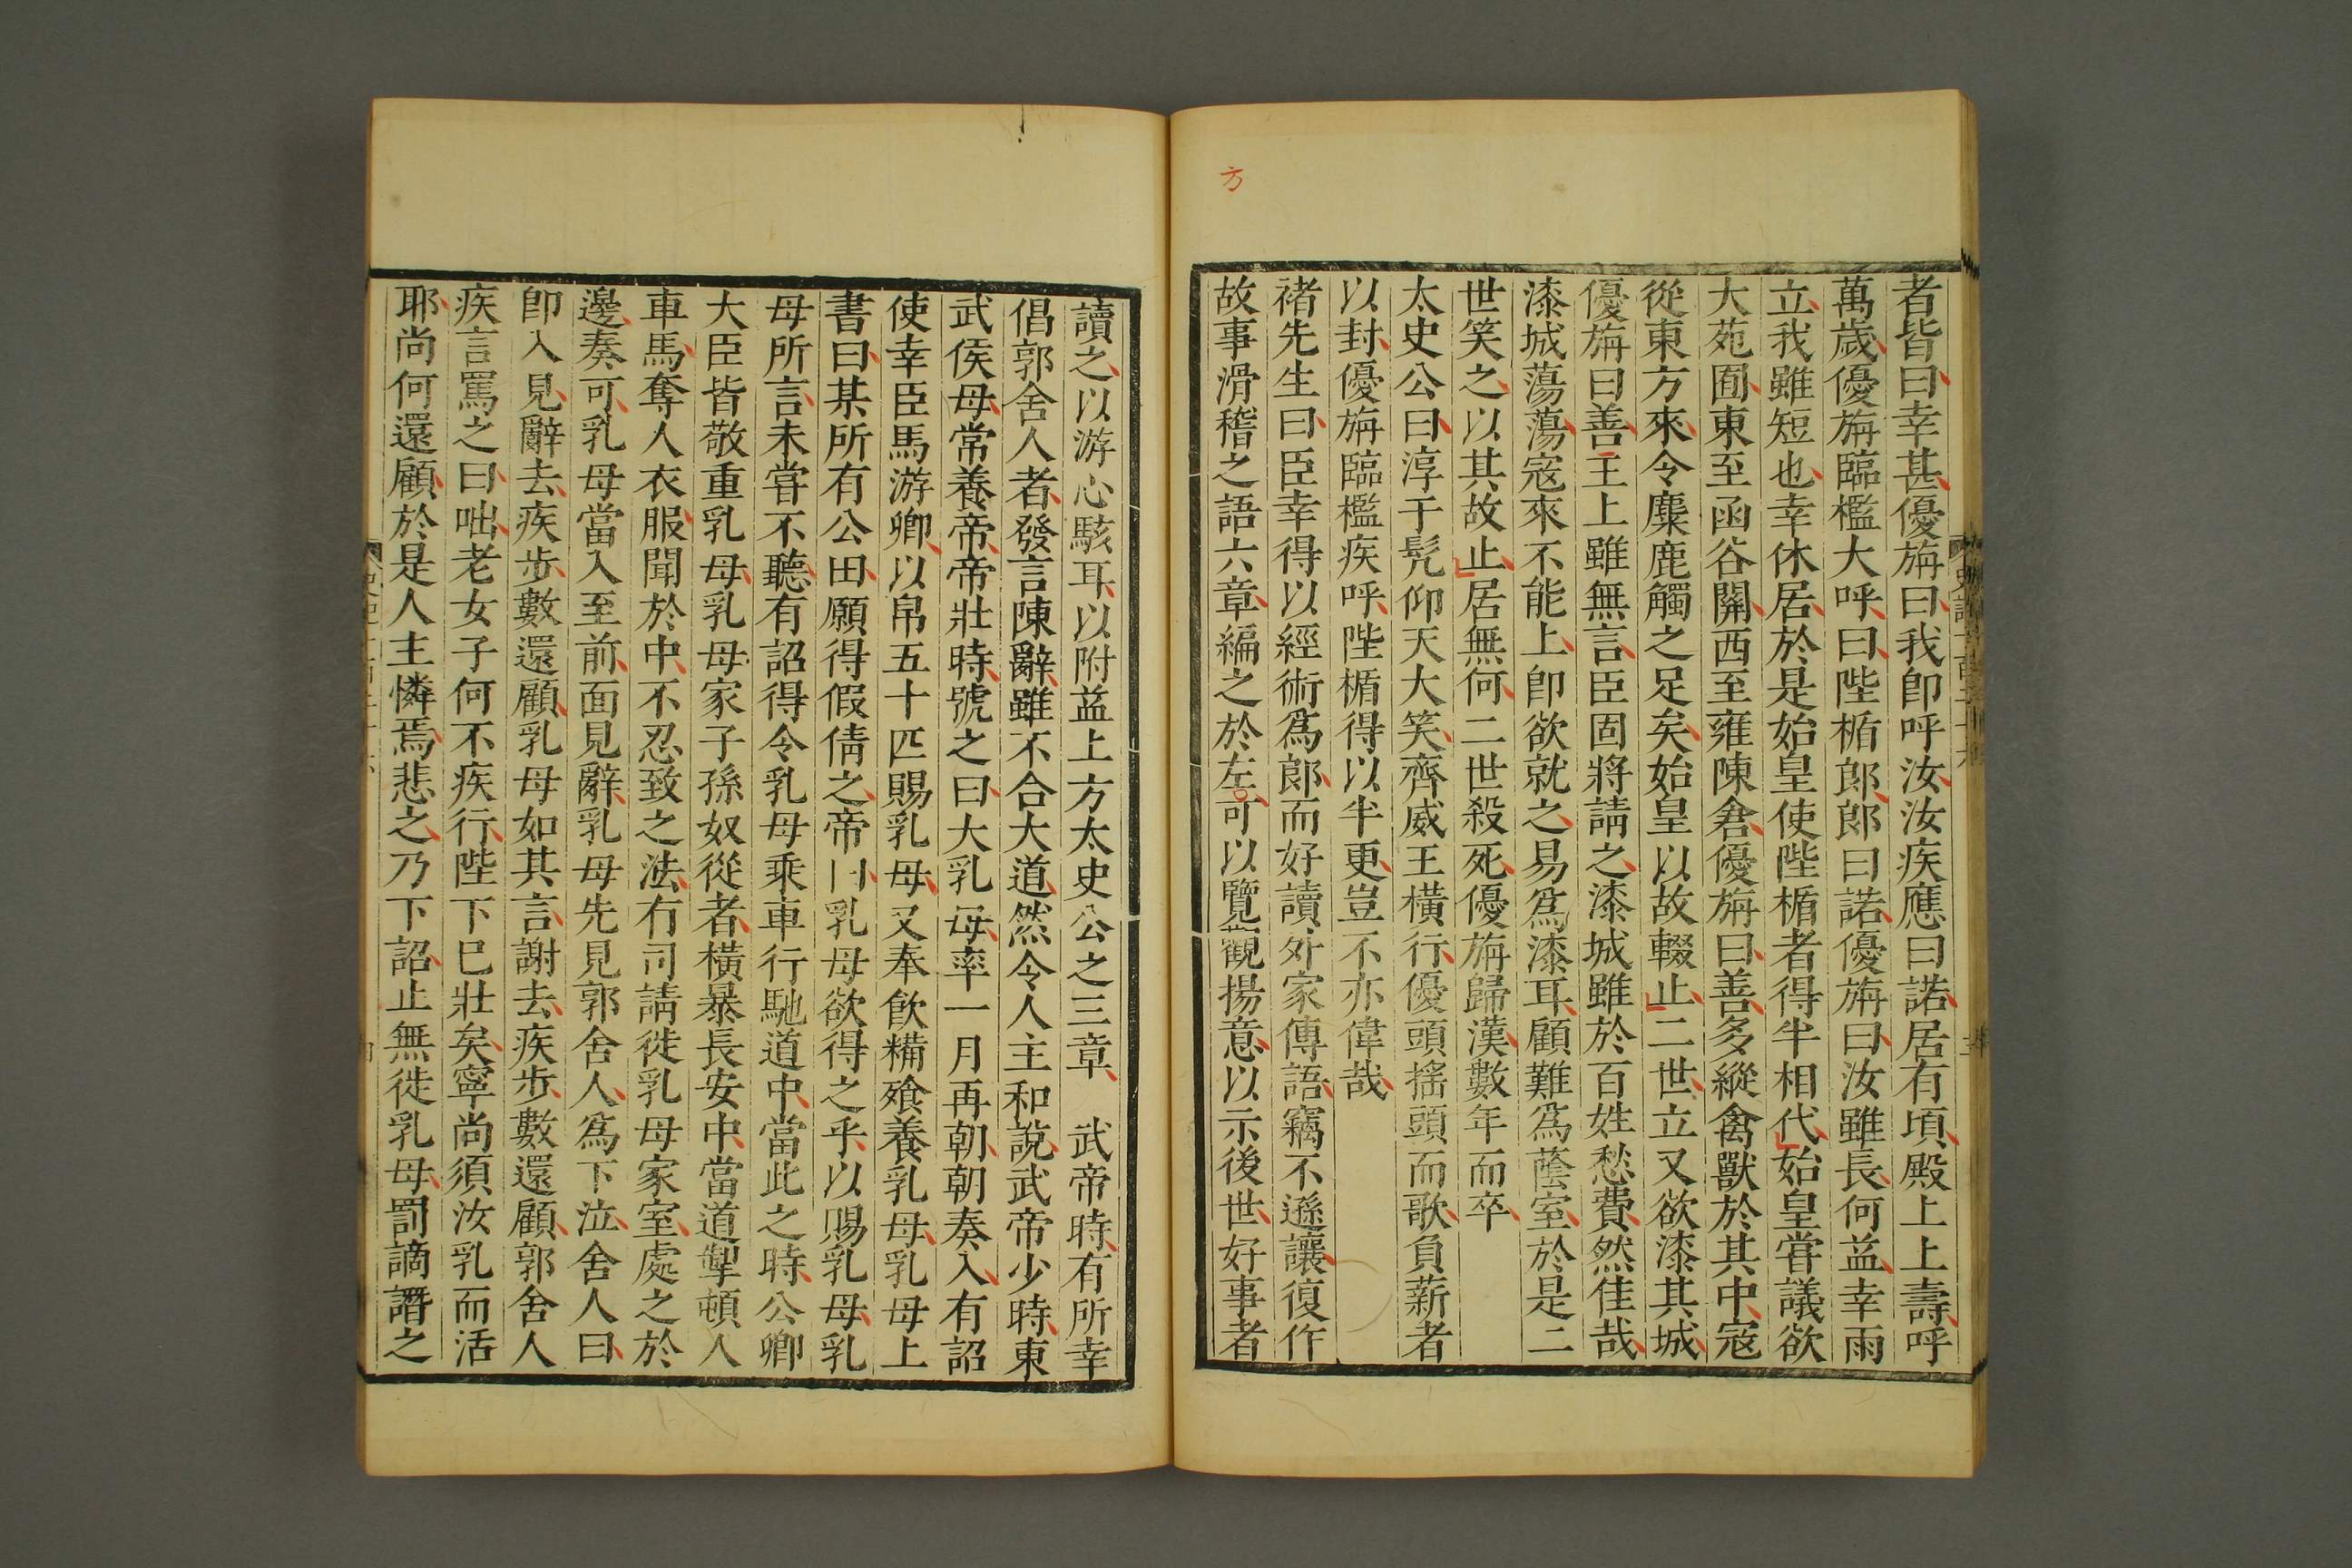 方
者皆曰幸甚優旃曰我卽呼汝汝疾應曰諾居有頃殿上上壽呼
萬歲優旃臨檻大呼曰陛楯郎郎曰諾優旃曰汝雖長何益幸雨
立我雖短也幸休居於是始皇使陛楯者得半相代始皇嘗議欲
大苑囿東至函谷關西至雍陳倉優旃曰善多縱禽獸於其中寇
從東方來令麋鹿觸之足矣始皇以故輟止二世立又欲漆其城
優旃曰善主上雖無言臣固將請之漆城雖於百姓愁費然佳哉
漆城蕩蕩寇來不能上卽欲就之易爲漆耳顧難爲蔭室於是二
世笑之以其故止居無何二世殺死優旃歸漢數年而卒
太史公曰淳于髡仰天大笑齊威王橫行優頭搖頭而歌負薪者
以封優旃臨檻疾呼陛楯得以半更豈不亦偉哉
褚先生曰臣幸得以經術爲郎而好讀外家傳語竊不遜讓復作
故事滑稽之語六章編之於左可以覽觀揚意以示後世好事者
讀之以游心駭耳以附益上方太史公之三章　武帝時有所幸
倡郭舍人者發言陳辭雖不合大道然令人主和說武帝少時東
武侯母常養帝帝壯時號之曰大乳母率一月再朝朝奏入有詔
使幸臣馬游卿以帛五十匹賜乳母又奉飮糒飱養乳母乳母上
書曰某所有公田願得假倩之帝曰乳母欲得之乎以賜乳母乳
母所言未嘗不聽有詔得令乳母乘車行馳道中當此之時公卿
大臣皆敬重乳母乳母家子孫奴從者橫暴長安中當道掣頓人
車馬奪人衣服聞於中不忍致之法有司請徙乳母家室處之於
邊奏可乳母當入至前面見辭乳母先見郭舍人爲下泣舍人曰
卽入見辭去疾步數還顧乳母如其言謝去疾步數還顧郭舍人
疾言罵之曰咄老女子何不疾行陛下已壯矣寧尚須汝乳而活
耶尚何還顧於是人主憐焉悲之乃下詔止無徙乳母罰謫譖之